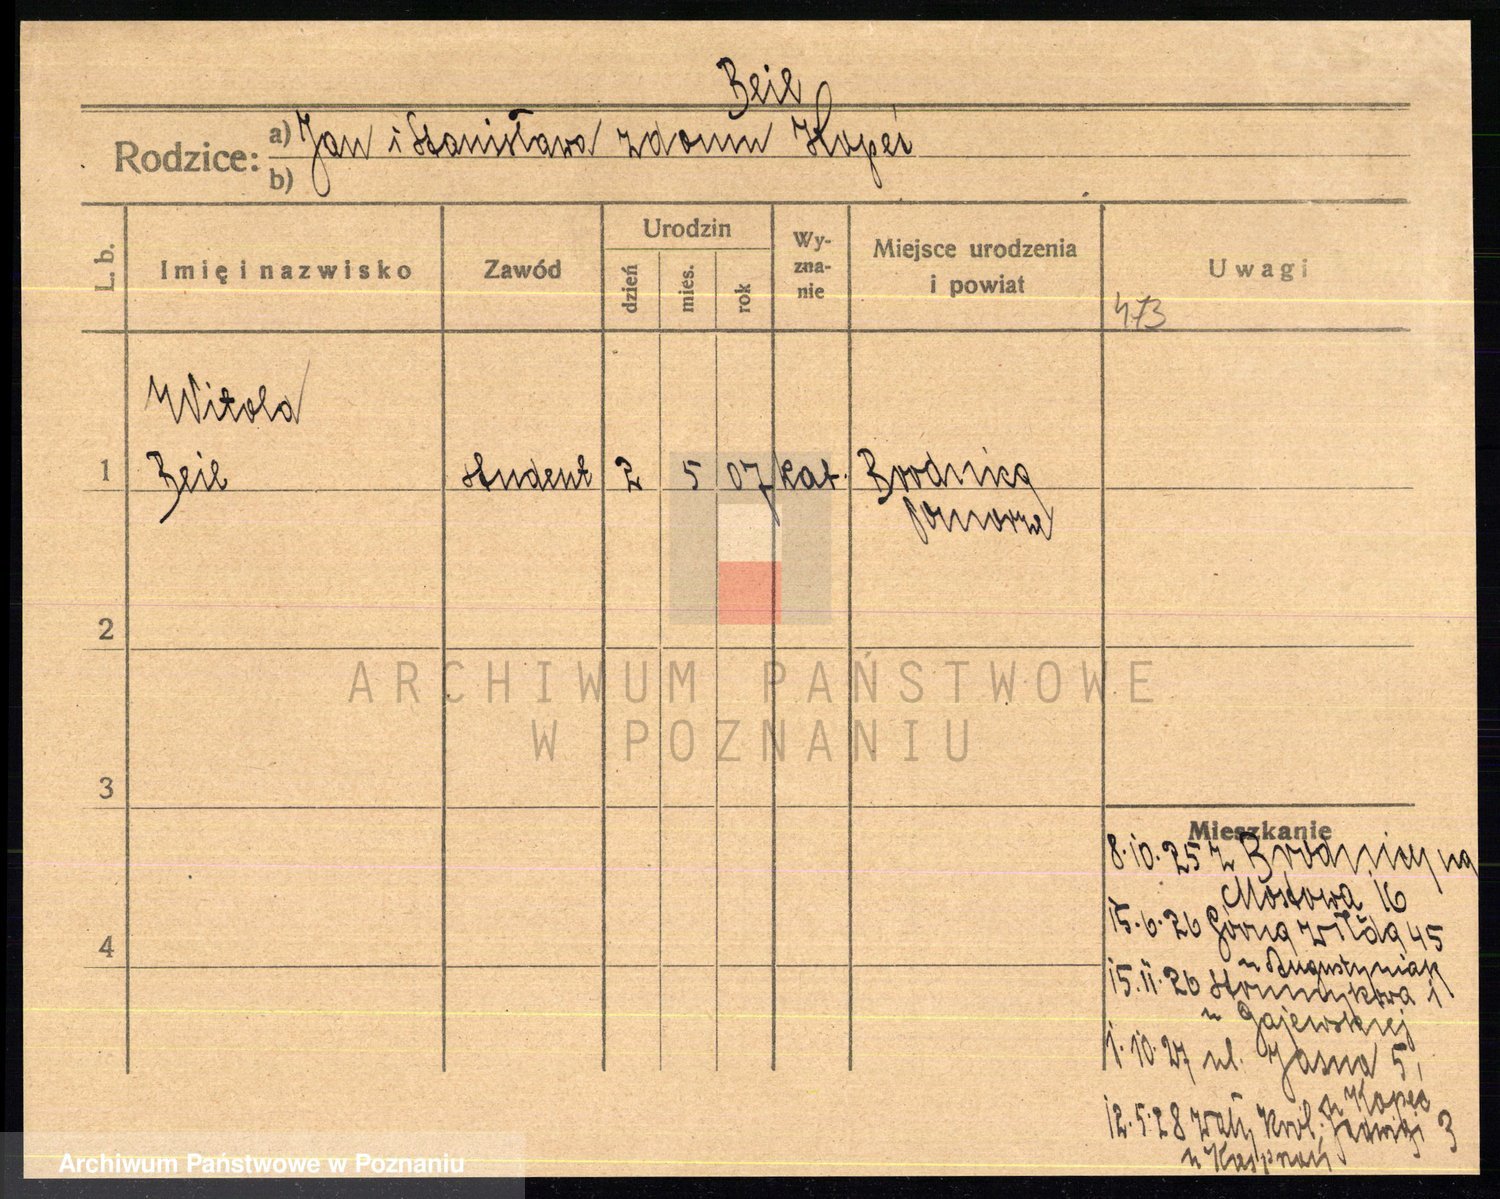 Beil
Rodzice: a) Jan i Stanisława z domu Kopeć
b)
L. b.
Imię i nazwisko
Zawód
Urodzin
dzień
mies.
rok
Wy-
zna-
nie
Miejsce urodzenia
i powiat
Uwagi
473
Witold
1 Beil student 2 5 07 kat. Brodnica
Pomorze
2
3
4
ARCHIWUM PAŃSTWOWE
W POZNANIU
Mieszkanie
8.10.25 z Brodnicy na
Mostowa 16
15.6.26 Górna Wilda 45
u Augustyniak
15.11.26 Strumykowa 1
u Gajewskiej
1.10.27 ul. Jasna 5,
u Kopeć
12.5.28 Wały Król. Jadwigi 3
u
Archiwum Państwowe w Poznaniu